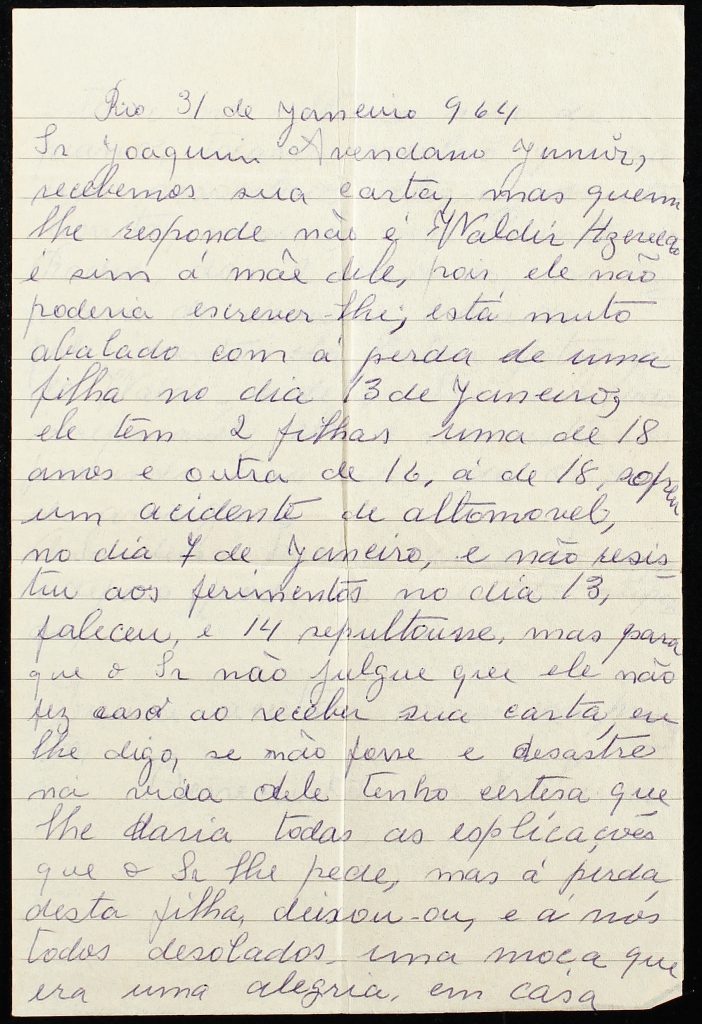 Rio 31 de Janeiro 964
Sr Joaquim Avendano Junior,
recebemos sua carta, mas quem
lhe responde não é Waldir Azevedo
é sim á mãe dele, pois, ele não
poderia escrever-lhe, está muto
abalado com á perda de uma
filha no dia 13 de Janeiro,
ele têm 2 filhas uma de 18
anos e outra de 16, á de 18, sofreu
um acidente de altomovel,
no dia 7 de Janeiro, e não resis
tiu aos ferimentos no dia 13,
faleceu, e 14 sepultousse, mas para
que o Sr não julgue que ele não
fez caso ao receber sua carta, eu
lhe digo, se não fosse e desastre
na vida dele tenho certesa que
lhe daria todas as esplicações
que o Sr lhe pede, mas á perda
desta filha, deixou-ou, e á nós
todos desolados. uma moça que
era uma alegria, em casa